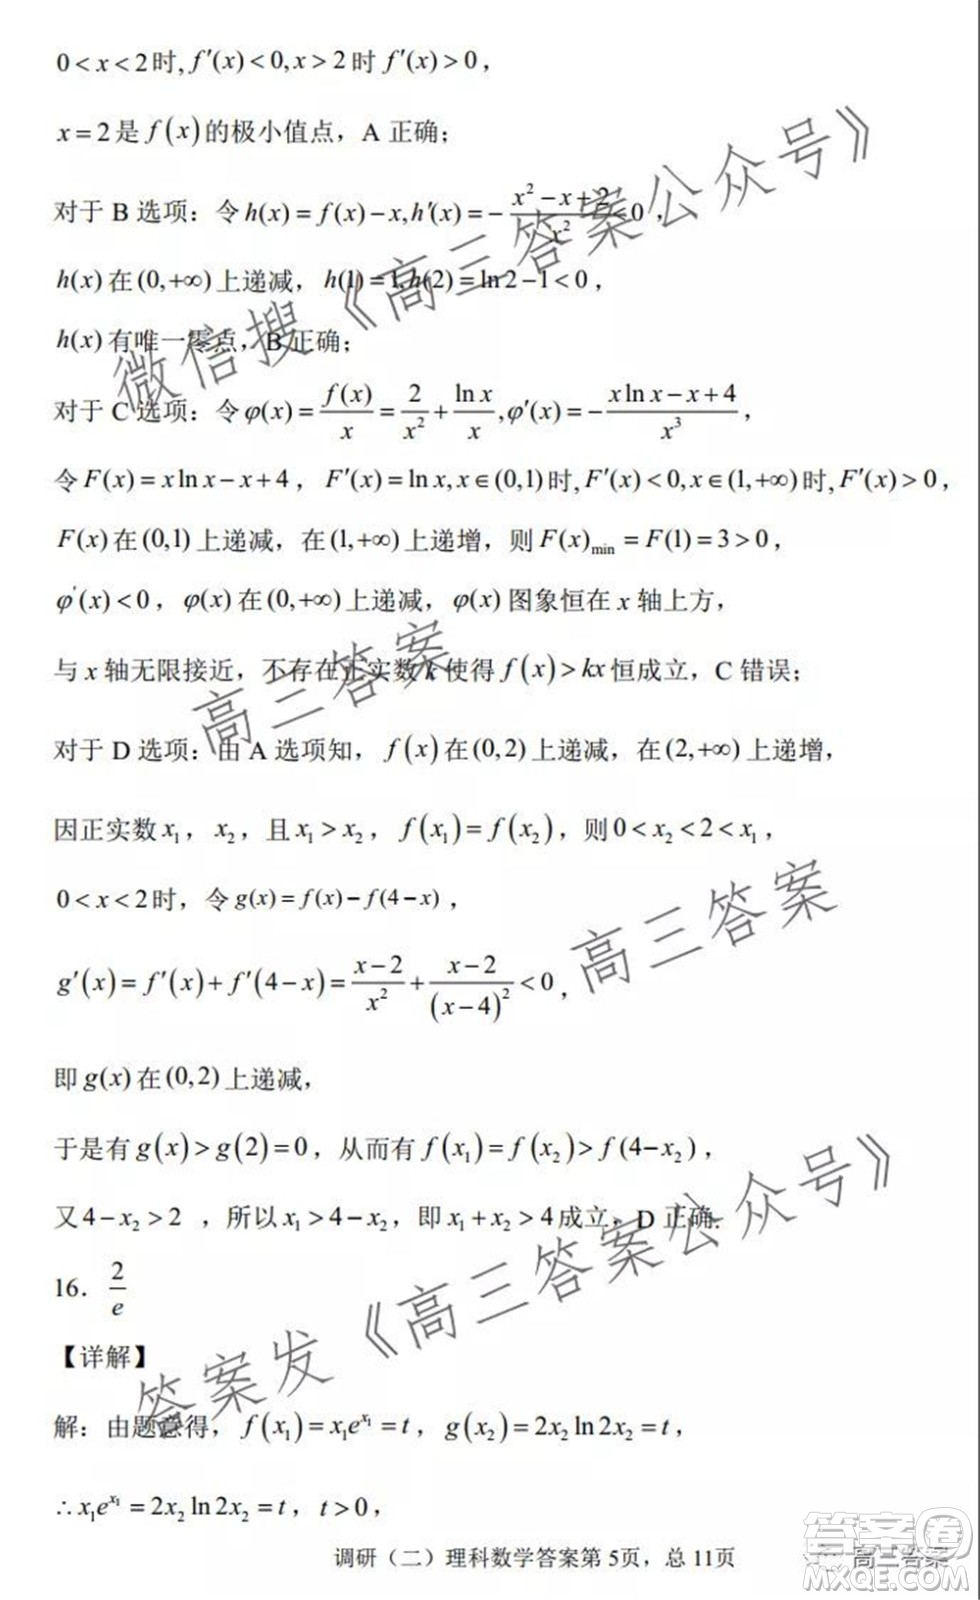 0 < x < 2时, f′(x) < 0, x > 2 时 f′(x) > 0，
x = 2 是 f(x) 的极小值点，A 正确；
对于 B 选项：令 h(x) = f(x) − x, h′(x) = − (x² − x + 2)/x² < 0，
h(x) 在 (0,+∞) 上递减，h(1) = 1, h(2) = ln2 − 1 < 0，
h(x) 有唯一零点，B 正确；
对于 C 选项：令 φ(x) = f(x)/x = 2/x² + ln x/x, φ′(x) = − (x ln x − x + 4)/x³，
令 F(x) = x ln x − x + 4， F′(x) = ln x, x ∈ (0,1) 时, F′(x) < 0, x ∈ (1,+∞) 时, F′(x) > 0，
F(x) 在 (0,1) 上递减，在 (1,+∞) 上递增，则 F(x)min = F(1) = 3 > 0，
φ′(x) < 0，φ(x) 在 (0,+∞) 上递减，φ(x) 图象恒在 x 轴上方，
与 x 轴无限接近，不存在正实数 k 使得 f(x) > kx 恒成立，C 错误；
对于 D 选项：由 A 选项知，f(x) 在 (0,2) 上递减，在 (2,+∞) 上递增，
因正实数 x₁，x₂，且 x₁ > x₂，f(x₁) = f(x₂)，则 0 < x₂ < 2 < x₁，
0 < x < 2 时，令 g(x) = f(x) − f(4 − x)，
g′(x) = f′(x) + f′(4 − x) = (x − 2)/x² + (x − 2)/(x − 4)² < 0，
即 g(x) 在 (0,2) 上递减，
于是有 g(x) > g(2) = 0，从而有 f(x₁) = f(x₂) > f(4 − x₂)，
又 4 − x₂ > 2 ，所以 x₁ > 4 − x₂，即 x₁ + x₂ > 4 成立，D 正确.
16． 2/e
【详解】
解：由题意得，f(x₁) = x₁e^x₁ = t，g(x₂) = 2x₂ ln 2x₂ = t，
∴ x₁e^x₁ = 2x₂ ln 2x₂ = t，t > 0，
调研（二）理科数学答案第 5页，总 11页
微信搜《高三答案公众号》
高三答案
高三答案
答案发《高三答案公众号》
高三答案
答案圈
MXQE.COM